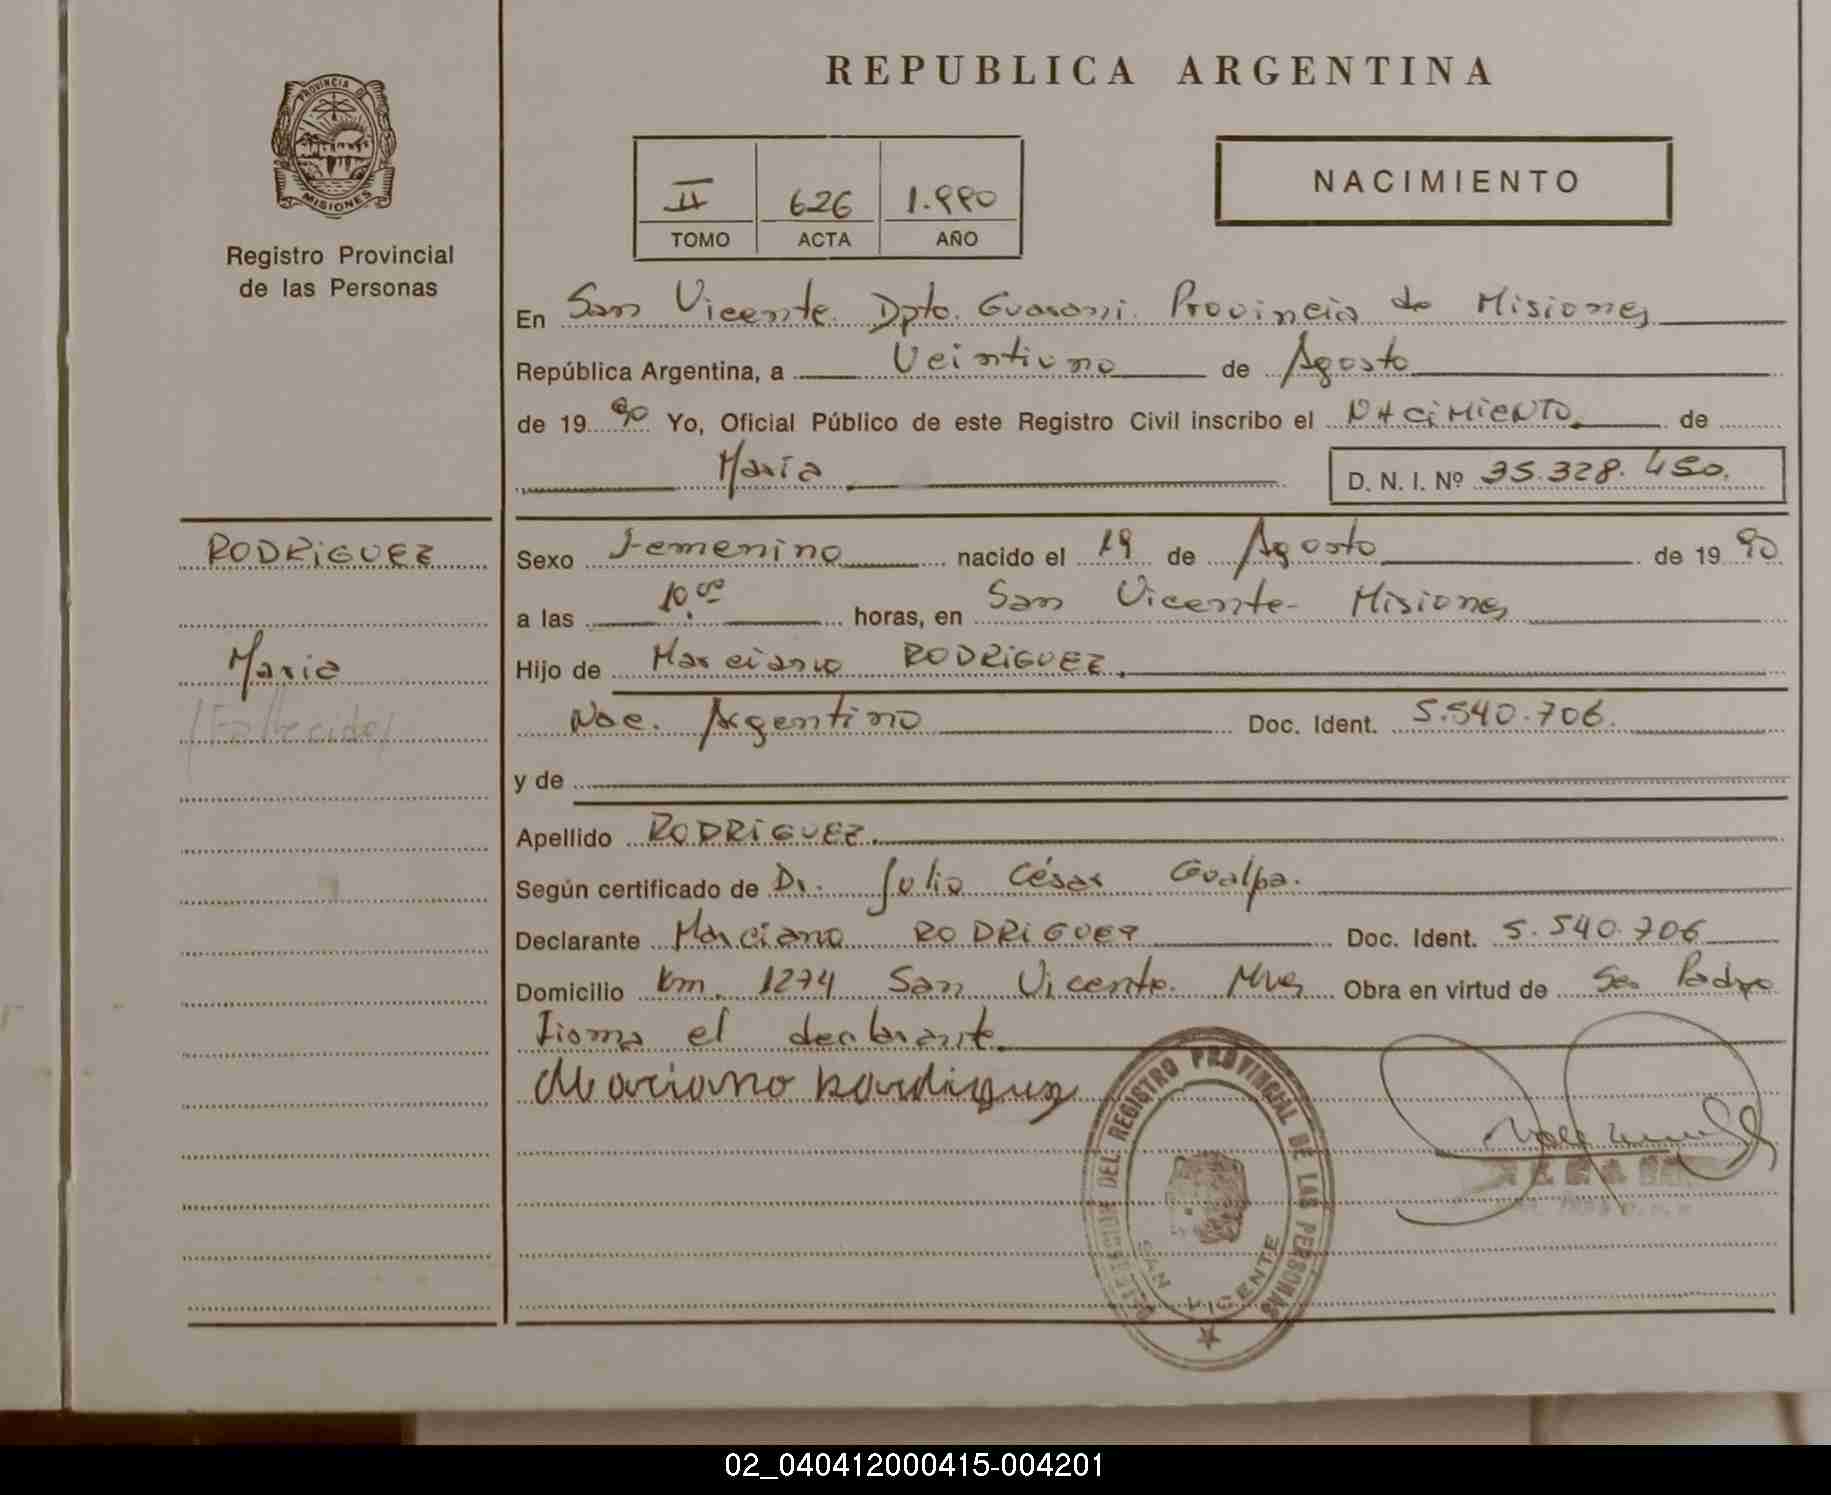 REPUBLICA ARGENTINA
PROVINCIA DE
MISIONES
Registro Provincial
de las Personas
II 626 1.990
TOMO ACTA AÑO
NACIMIENTO
En San Vicente Dpto. Guaraní. Provincia de Misiones
República Argentina, a Veintiuno de Agosto
de 1990 Yo, Oficial Público de este Registro Civil inscribo el NACIMIENTO de
María D. N. I. Nº 35.328.450.
RODRIGUEZ
Maria
(Fallecido)
Sexo Femenino nacido el 19 de Agosto de 1990
a las 10,00 horas, en San Vicente - Misiones
Hijo de Marciano RODRIGUEZ.
Nac. Argentino Doc. Ident. 5.540.706.
y de
Apellido RODRIGUEZ.
Según certificado de Dr. Julio César Gualpa.
Declarante Marciano RODRIGUEZ Doc. Ident. 5.540.706
Domicilio Km. 1274 San Vicente. Mnes Obra en virtud de Ser Padre
Firma el declarante.
Marciano Rardiguez
DEL REGISTRO PROVINCIAL DE LAS PERSONAS
SAN VICENTE
02_040412000415-004201